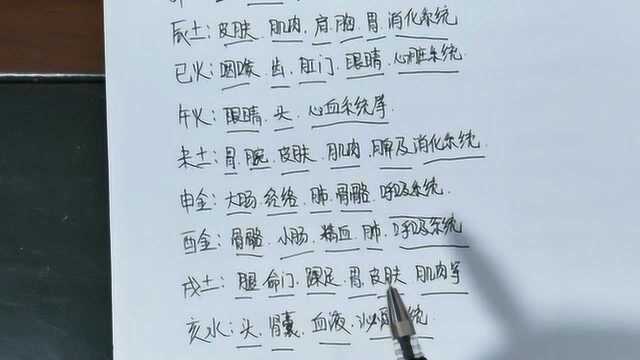 辰土：皮肤、肌肉、肩、胸、胃消化系统
巳火：咽喉、齿、肛门、眼睛、心脏系统
午火：眼睛、头、心血系统等
未土：胃、腕、皮肤、肌肉、脾及消化系统
申金：大肠、经络、肺、骨骼、呼吸系统
酉金：骨骼、小肠、精血、肺、呼吸系统
戌土：腿、命门、踝足、胃、皮肤、肌肉等
亥水：头、肾囊、血液、泌系统